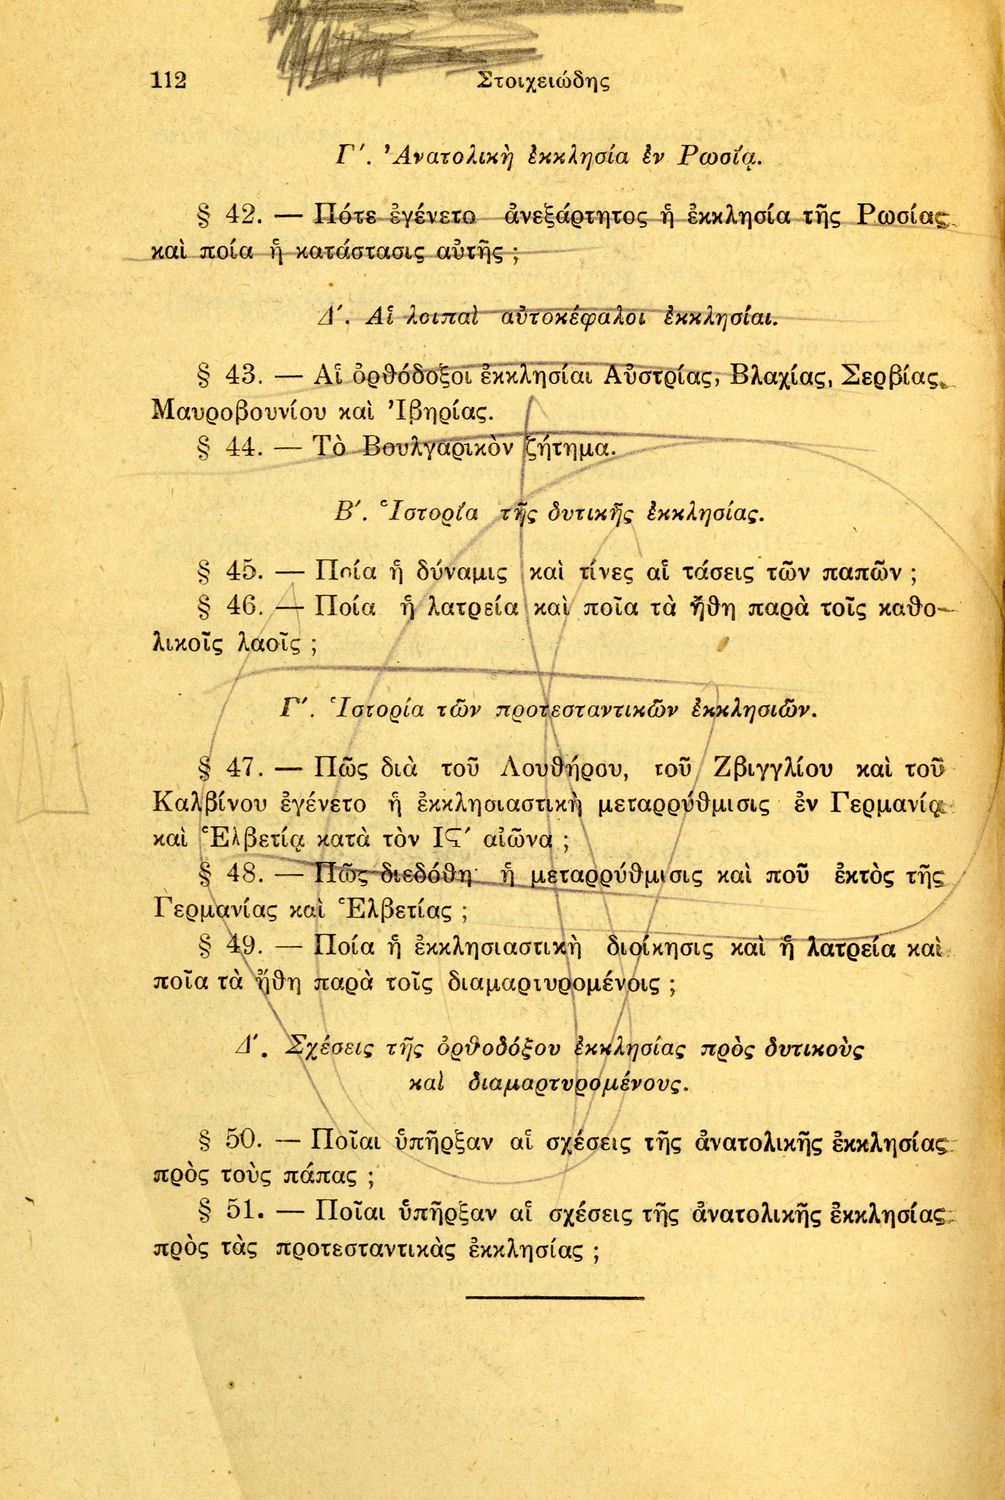 112 Στοιχειώδης
Γ΄. Ἀνατολικὴ ἐκκλησία ἐν Ρωσίᾳ.
§ 42. — Πότε ἐγένετο ἀνεξάρτητος ἡ ἐκκλησία τῆς Ρωσίας
καὶ ποία ἡ κατάστασις αὐτῆς ;
Δ΄. Αἱ λοιπαὶ αὐτοκέφαλοι ἐκκλησίαι.
§ 43. — Αἱ ὀρθόδοξοι ἐκκλησίαι Αὐστρίας, Βλαχίας, Σερβίας,
Μαυροβουνίου καὶ Ἰβηρίας.
§ 44. — Τὸ Βουλγαρικὸν ζήτημα.
Β΄. Ἱστορία τῆς δυτικῆς ἐκκλησίας.
§ 45. — Ποία ἡ δύναμις καὶ τίνες αἱ τάσεις τῶν παπῶν ;
§ 46. — Ποία ἡ λατρεία καὶ ποῖα τὰ ἤθη παρὰ τοῖς καθο-
λικοῖς λαοῖς ;
Γ΄. Ἱστορία τῶν προτεσταντικῶν ἐκκλησιῶν.
§ 47. — Πῶς διὰ τοῦ Λουθήρου, τοῦ Ζβιγγλίου καὶ τοῦ
Καλβίνου ἐγένετο ἡ ἐκκλησιαστικὴ μεταρρύθμισις ἐν Γερμανίᾳ
καὶ Ἑλβετίᾳ κατὰ τὸν ΙϚ΄ αἰῶνα ;
§ 48. — Πῶς διεδόθη ἡ μεταρρύθμισις καὶ ποῦ ἐκτὸς τῆς
Γερμανίας καὶ Ἑλβετίας ;
§ 49. — Ποία ἡ ἐκκλησιαστικὴ διοίκησις καὶ ἡ λατρεία καὶ
ποῖα τὰ ἤθη παρὰ τοῖς διαμαρτυρομένοις ;
Δ΄. Σχέσεις τῆς ὀρθοδόξου ἐκκλησίας πρὸς δυτικοὺς
καὶ διαμαρτυρομένους.
§ 50. — Ποῖαι ὑπῆρξαν αἱ σχέσεις τῆς ἀνατολικῆς ἐκκλησίας
πρὸς τοὺς πάπας ;
§ 51. — Ποῖαι ὑπῆρξαν αἱ σχέσεις τῆς ἀνατολικῆς ἐκκλησίας
πρὸς τὰς προτεσταντικὰς ἐκκλησίας ;